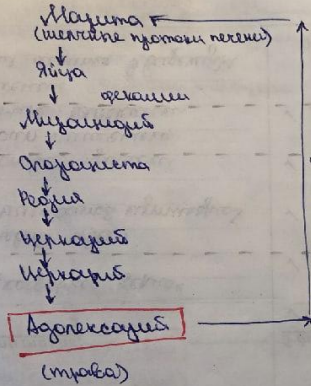 Марита
(желчные протоки печени)
Яйца
фекалии
Мирацидий
Спороциста
Редия
Церкарий
Церкарий
Адолескарий
(трава)